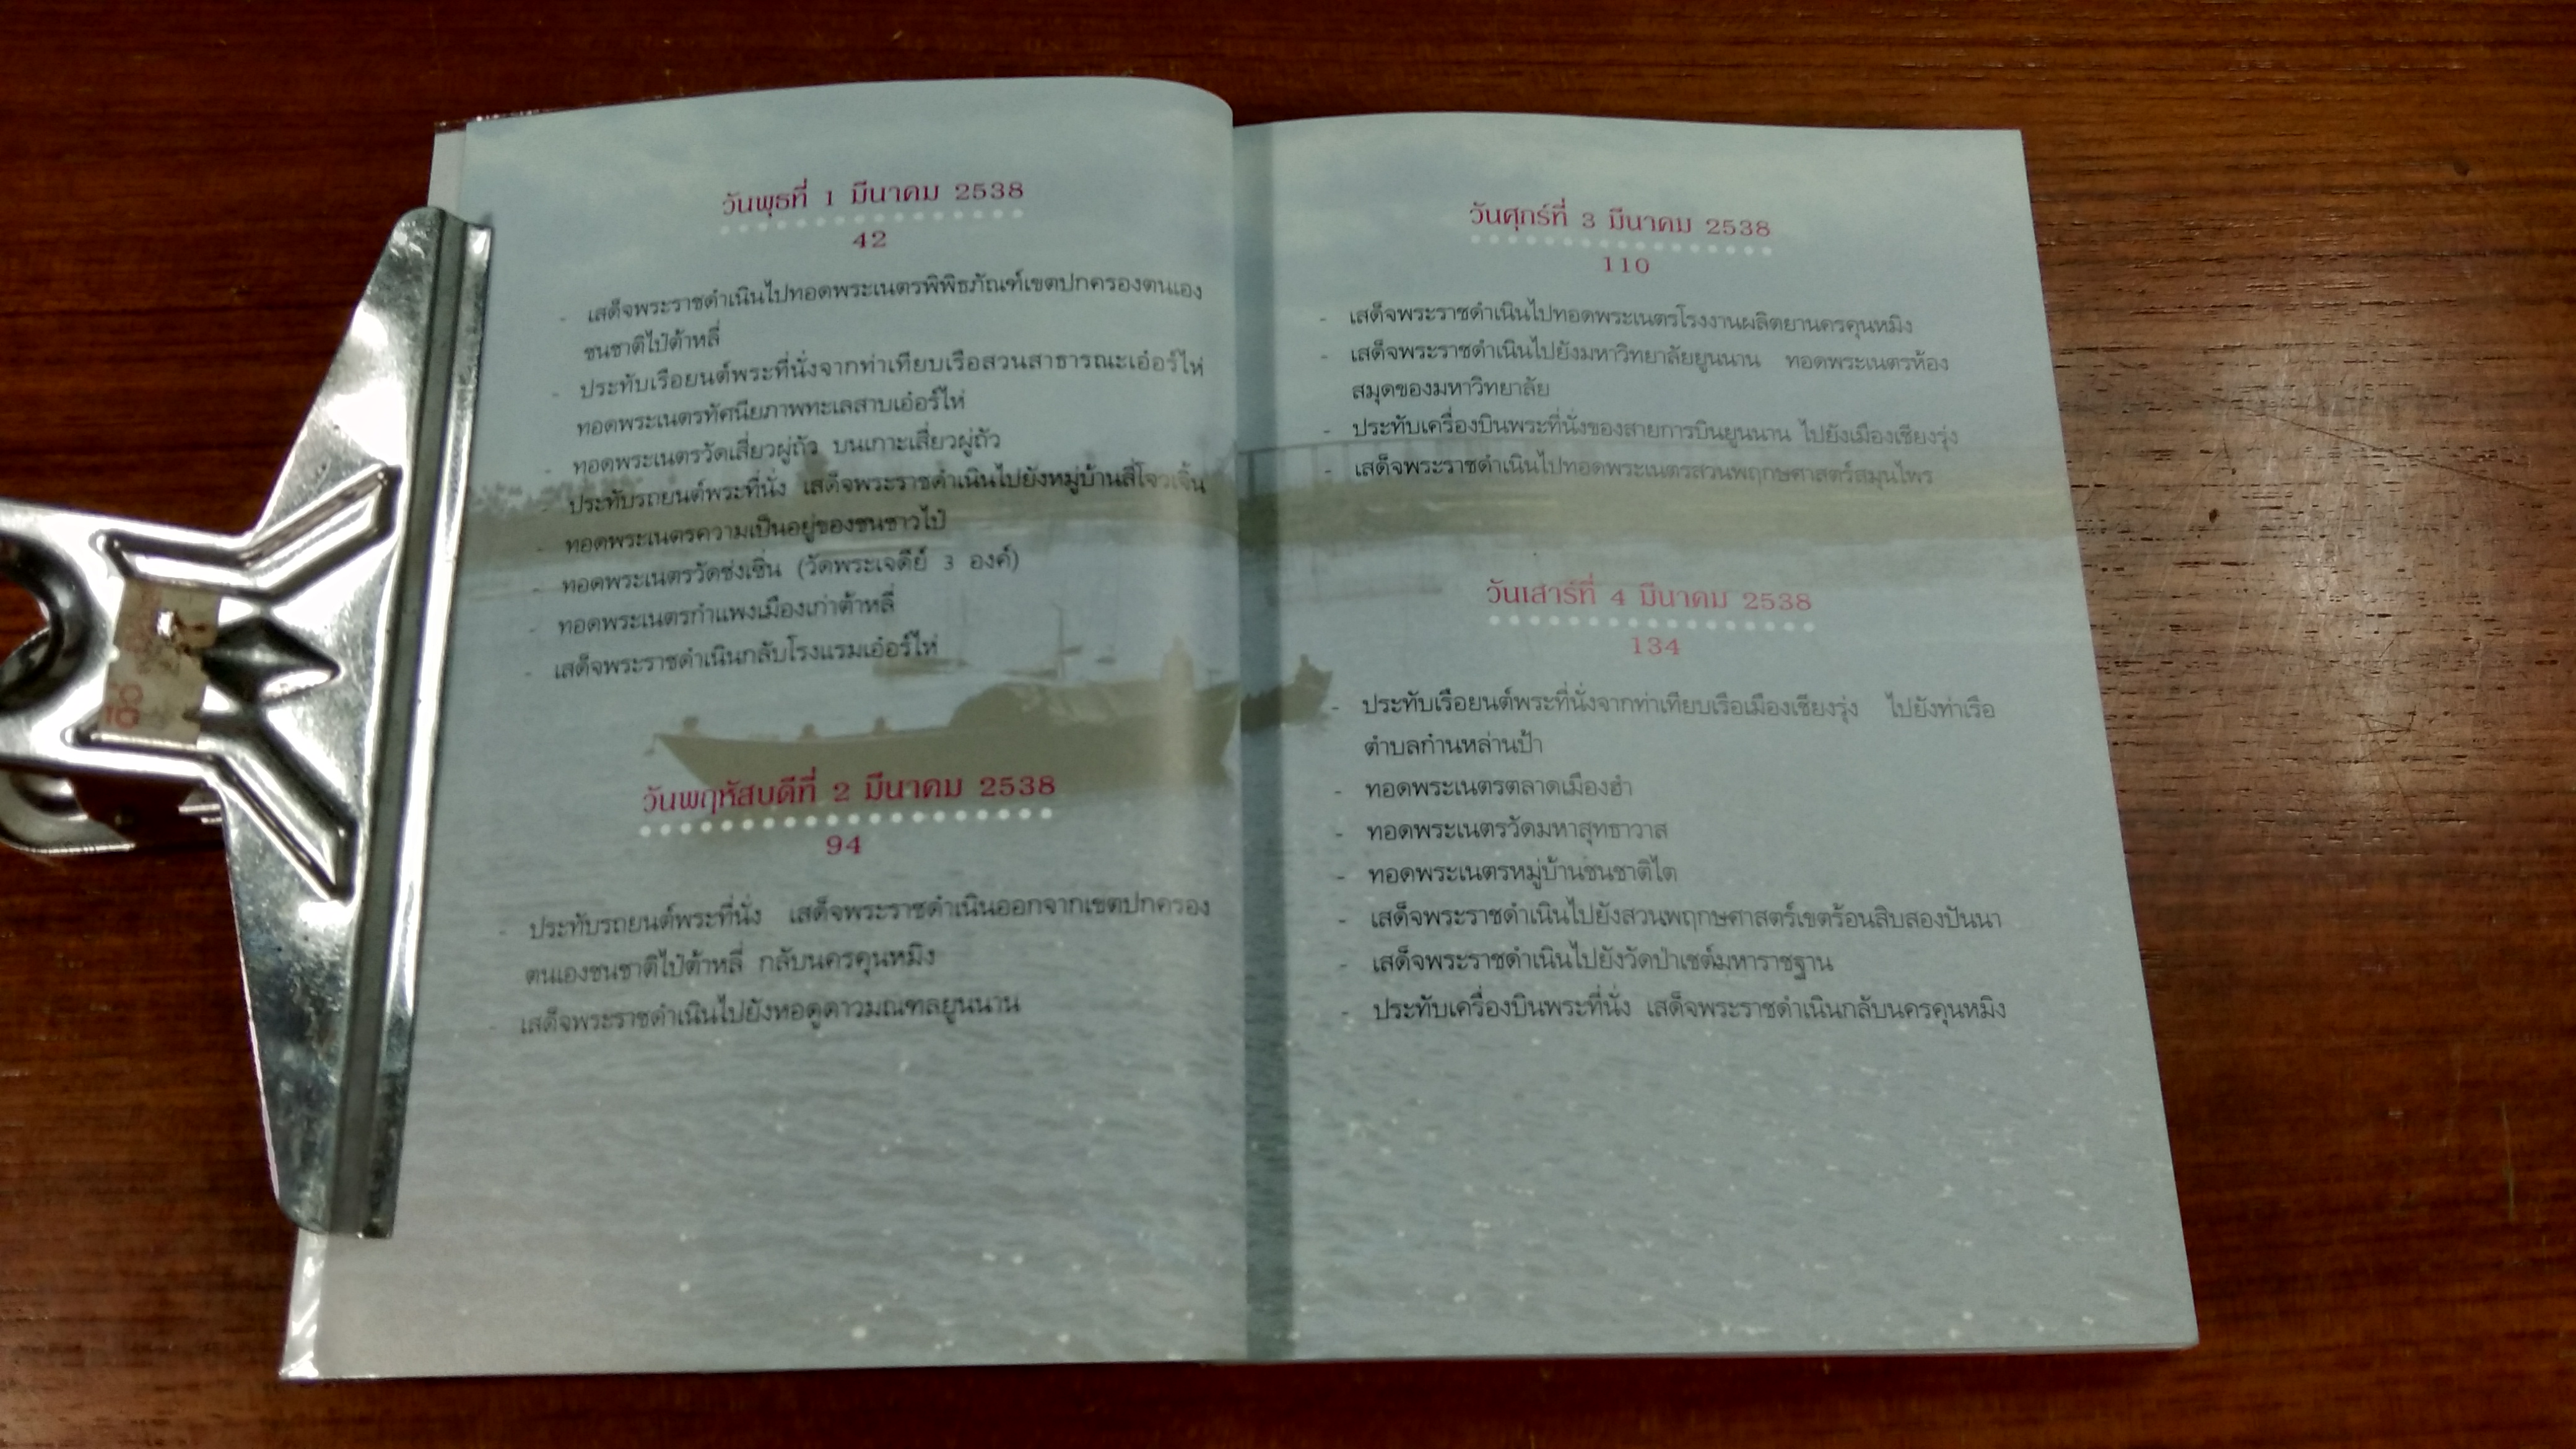 วันพุธที่ 1 มีนาคม 2538
42
- เสด็จพระราชดำเนินไปทอดพระเนตรพิพิธภัณฑ์เขตปกครองตนเอง
ชนชาติไป๋ต้าหลี่
- ประทับเรือยนต์พระที่นั่งจากท่าเทียบเรือสวนสาธารณะเอ๋อร์ไห่
ทอดพระเนตรทัศนียภาพทะเลสาบเอ๋อร์ไห่
- ทอดพระเนตรวัดเสี่ยวผู่ถัว บนเกาะเสี่ยวผู่ถัว
- ประทับรถยนต์พระที่นั่ง เสด็จพระราชดำเนินไปยังหมู่บ้านสี่โจวเจิ้น
- ทอดพระเนตรความเป็นอยู่ของชนชาวไป๋
- ทอดพระเนตรวัดซ่งเซิ่น (วัดพระเจดีย์ 3 องค์)
- ทอดพระเนตรกำแพงเมืองเก่าต้าหลี่
- เสด็จพระราชดำเนินกลับโรงแรมเอ๋อร์ไห่
วันพฤหัสบดีที่ 2 มีนาคม 2538
94
- ประทับรถยนต์พระที่นั่ง เสด็จพระราชดำเนินออกจากเขตปกครอง
ตนเองชนชาติไป๋ต้าหลี่ กลับนครคุนหมิง
- เสด็จพระราชดำเนินไปยังหอดูดาวมณฑลยูนนาน
วันศุกร์ที่ 3 มีนาคม 2538
110
- เสด็จพระราชดำเนินไปทอดพระเนตรโรงงานผลิตยานครคุนหมิง
- เสด็จพระราชดำเนินไปยังมหาวิทยาลัยยูนนาน ทอดพระเนตรห้อง
สมุดของมหาวิทยาลัย
- ประทับเครื่องบินพระที่นั่งของสายการบินยูนนาน ไปยังเมืองเชียงรุ่ง
- เสด็จพระราชดำเนินไปทอดพระเนตรสวนพฤกษศาสตร์สมุนไพร
วันเสาร์ที่ 4 มีนาคม 2538
134
- ประทับเรือยนต์พระที่นั่งจากท่าเทียบเรือเมืองเชียงรุ่ง ไปยังท่าเรือ
ตำบลก๋านหล่านป้า
- ทอดพระเนตรตลาดเมืองฮำ
- ทอดพระเนตรวัดมหาสุทธาวาส
- ทอดพระเนตรหมู่บ้านชนชาติไต
- เสด็จพระราชดำเนินไปยังสวนพฤกษศาสตร์เขตร้อนสิบสองปันนา
- เสด็จพระราชดำเนินไปยังวัดป่าเชต์มหาราชฐาน
- ประทับเครื่องบินพระที่นั่ง เสด็จพระราชดำเนินกลับนครคุนหมิง